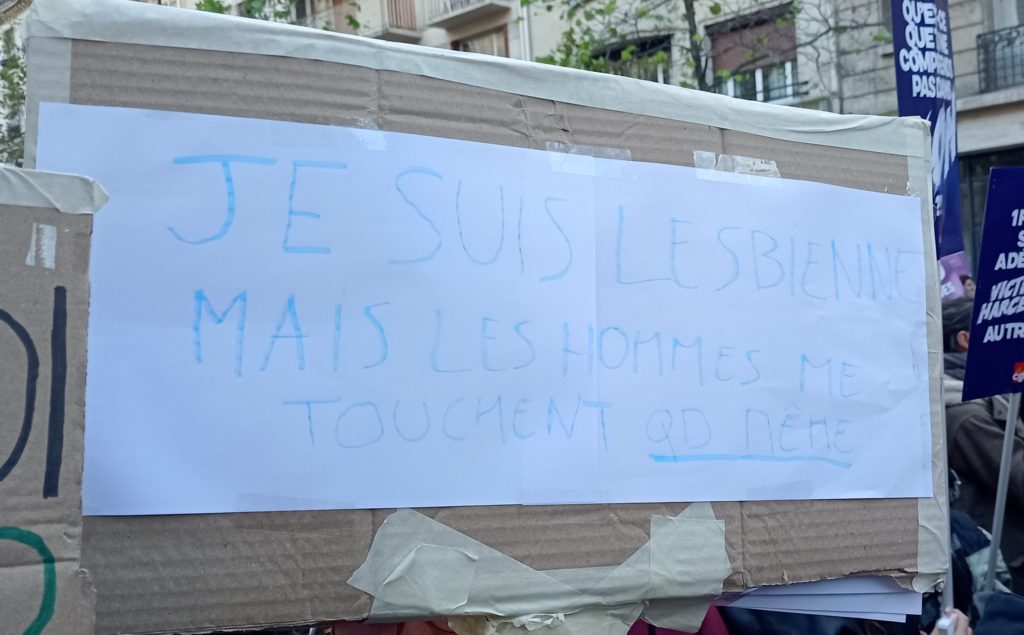 JE SUIS LESBIENNE
MAIS LES HOMMES ME
TOUCHENT QD MÊME
QU'EST-CE
QUE
COMPRENDS
PAS DANS
VICTI
AUTR